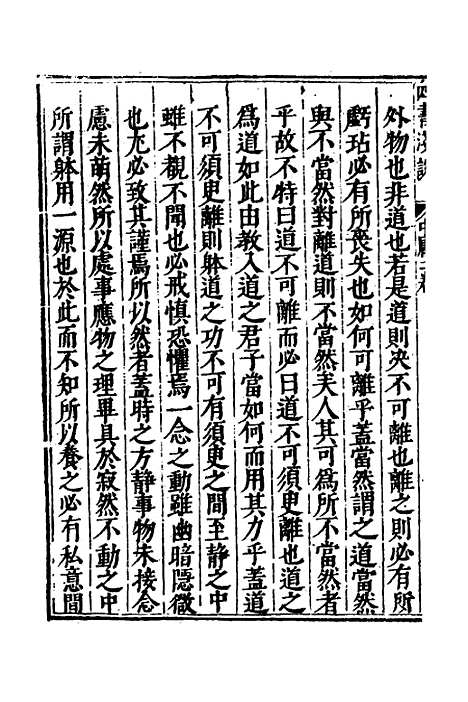 外物也非道也若是道則决不可離也離之則必有所
虧玷必有所喪失也如何可離乎蓋當然謂之道當然
與不當然對離道則不當然矣人其可爲所不當然者
乎故不特曰道不可離而必曰道不可須臾離也道之
爲道如此由教入道之君子當如何而用其力乎蓋道
不可須臾離則躰道之功不可有須臾之間至静之中
雖不覩不聞也必戒慎恐懼焉一念之動雖幽暗隱微
也尤必致其謹焉所以然者蓋時之方静事物未接念
慮未萌然所以處事應物之理畢具於寂然不動之中
所謂躰用一源也於此而不知所以養之必有私意間